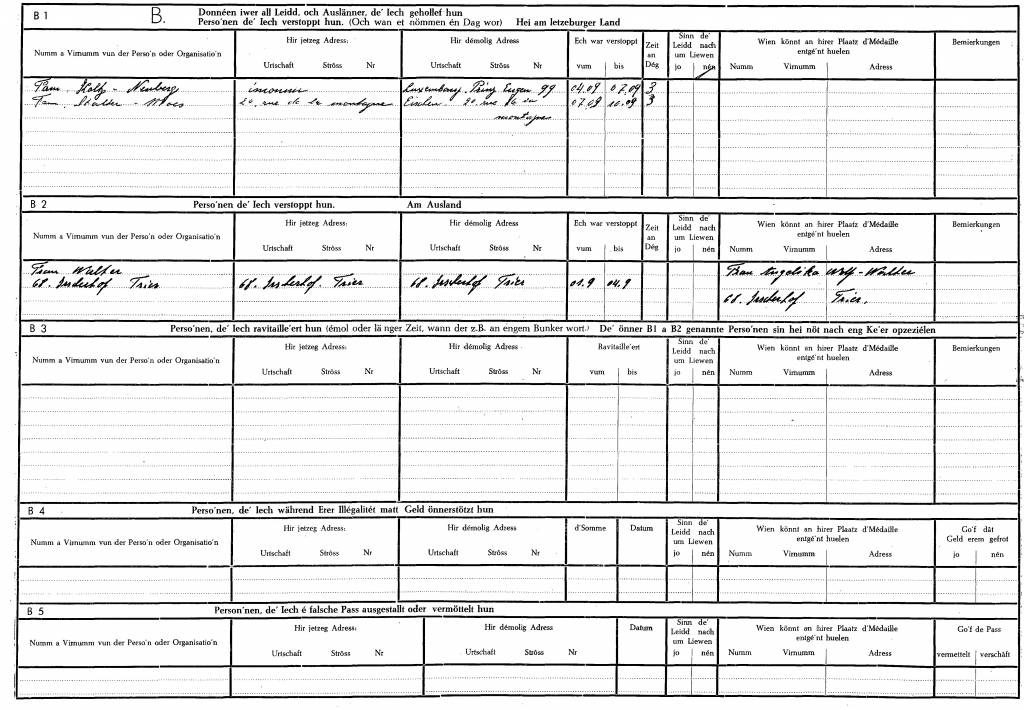 B 1 B. Donnéen iwer all Leidd, och Auslänner, de' Iech gehollef hun
Perso'nen de' Iech verstoppt hun. (Och wan et nömmen én Dag wor) Hei am letzeburger Land
Numm a Virnumm vun der Perso'n oder Organisatio'n
Hir jetzeg Adress:
Urtschaft Ströss Nr
Hir démolig Adress
Urtschaft Ströss Nr
Ech war verstoppt
vum bis
Zeit an Dég
Sinn de' Leidd nach um Liewen
jo nén
Wien könnt an hirer Plaatz d'Médaille entgé'nt huelen
Numm Virnumm Adress
Bemierkungen
Fam. Holtz - Neuberg Luxembourg. Prinz Eugen 99 04.09 07.09 3
Fam. - Moes 20. rue de la montagne Eischen. 20. rue de la 07.09 10.09 3
montagne
B 2 Perso'nen de' Iech verstoppt hun. Am Ausland
Numm a Virnumm vun der Perso'n oder Organisatio'n
Hir jetzeg Adress:
Urtschaft Ströss Nr
Hir démolig Adress
Urtschaft Ströss Nr
Ech war verstoppt
vum bis
Zeit an Dég
Sinn de' Leidd nach um Liewen
jo nén
Wien könnt an hirer Plaatz d'Médaille entgé'nt huelen
Numm Virnumm Adress
Bemierkungen
Walter Frau Angelika Wolf - Walther
68. Trier 68. Trier 68. Trier 01.9 04.9
68. Trier.
B 3 Perso'nen, de' Iech ravitaille'ert hun (émol oder länger Zeit, wann der z.B. an engem Bunker wort.) De' önner B1 a B2 genannte Perso'nen sin hei nöt nach eng Ke'er opzeziélen
Numm a Virnumm vun der Perso'n oder Organisatio'n
Hir jetzeg Adress:
Urtschaft Ströss Nr
Hir démolig Adress
Urtschaft Ströss Nr
Ravitaille'ert
vum bis
Sinn de' Leidd nach um Liewen
jo nén
Wien könnt an hirer Plaatz d'Médaille entgé'nt huelen
Numm Virnumm Adress
Bemierkungen
B 4 Perso'nen, de' Iech während Erer Illégalitét matt Geld önnerstötzt hun
Numm a Virnumm vun der Perso'n oder Organisatio'n
Hir jetzeg Adress:
Urtschaft Ströss Nr
Hir démolig Adress
Urtschaft Ströss Nr
d'Somme
Datum
Sinn de' Leidd nach um Liewen
jo nén
Wien könnt an hirer Plaatz d'Médaille entgé'nt huelen
Numm Virnumm Adress
Go'f dât Geld erem gefrot
jo nén
B 5 Person'nen, de' Iech é falsche Pass ausgestallt oder vermöttelt hun
Numm a Virnumm vun der Perso'n oder Organisatio'n
Hir jetzeg Adress:
Urtschaft Ströss Nr
Hir démolig Adress
Urtschaft Ströss Nr
Datum
Sinn de' Leidd nach um Liewen
jo nén
Wien könnt an hirer Plaatz d'Médaille entgé'nt huelen
Numm Virnumm Adress
Go'f de Pass
vermettelt verschâft